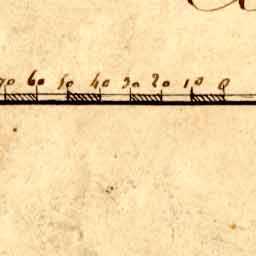 70 60 50 40 30 20 10 0